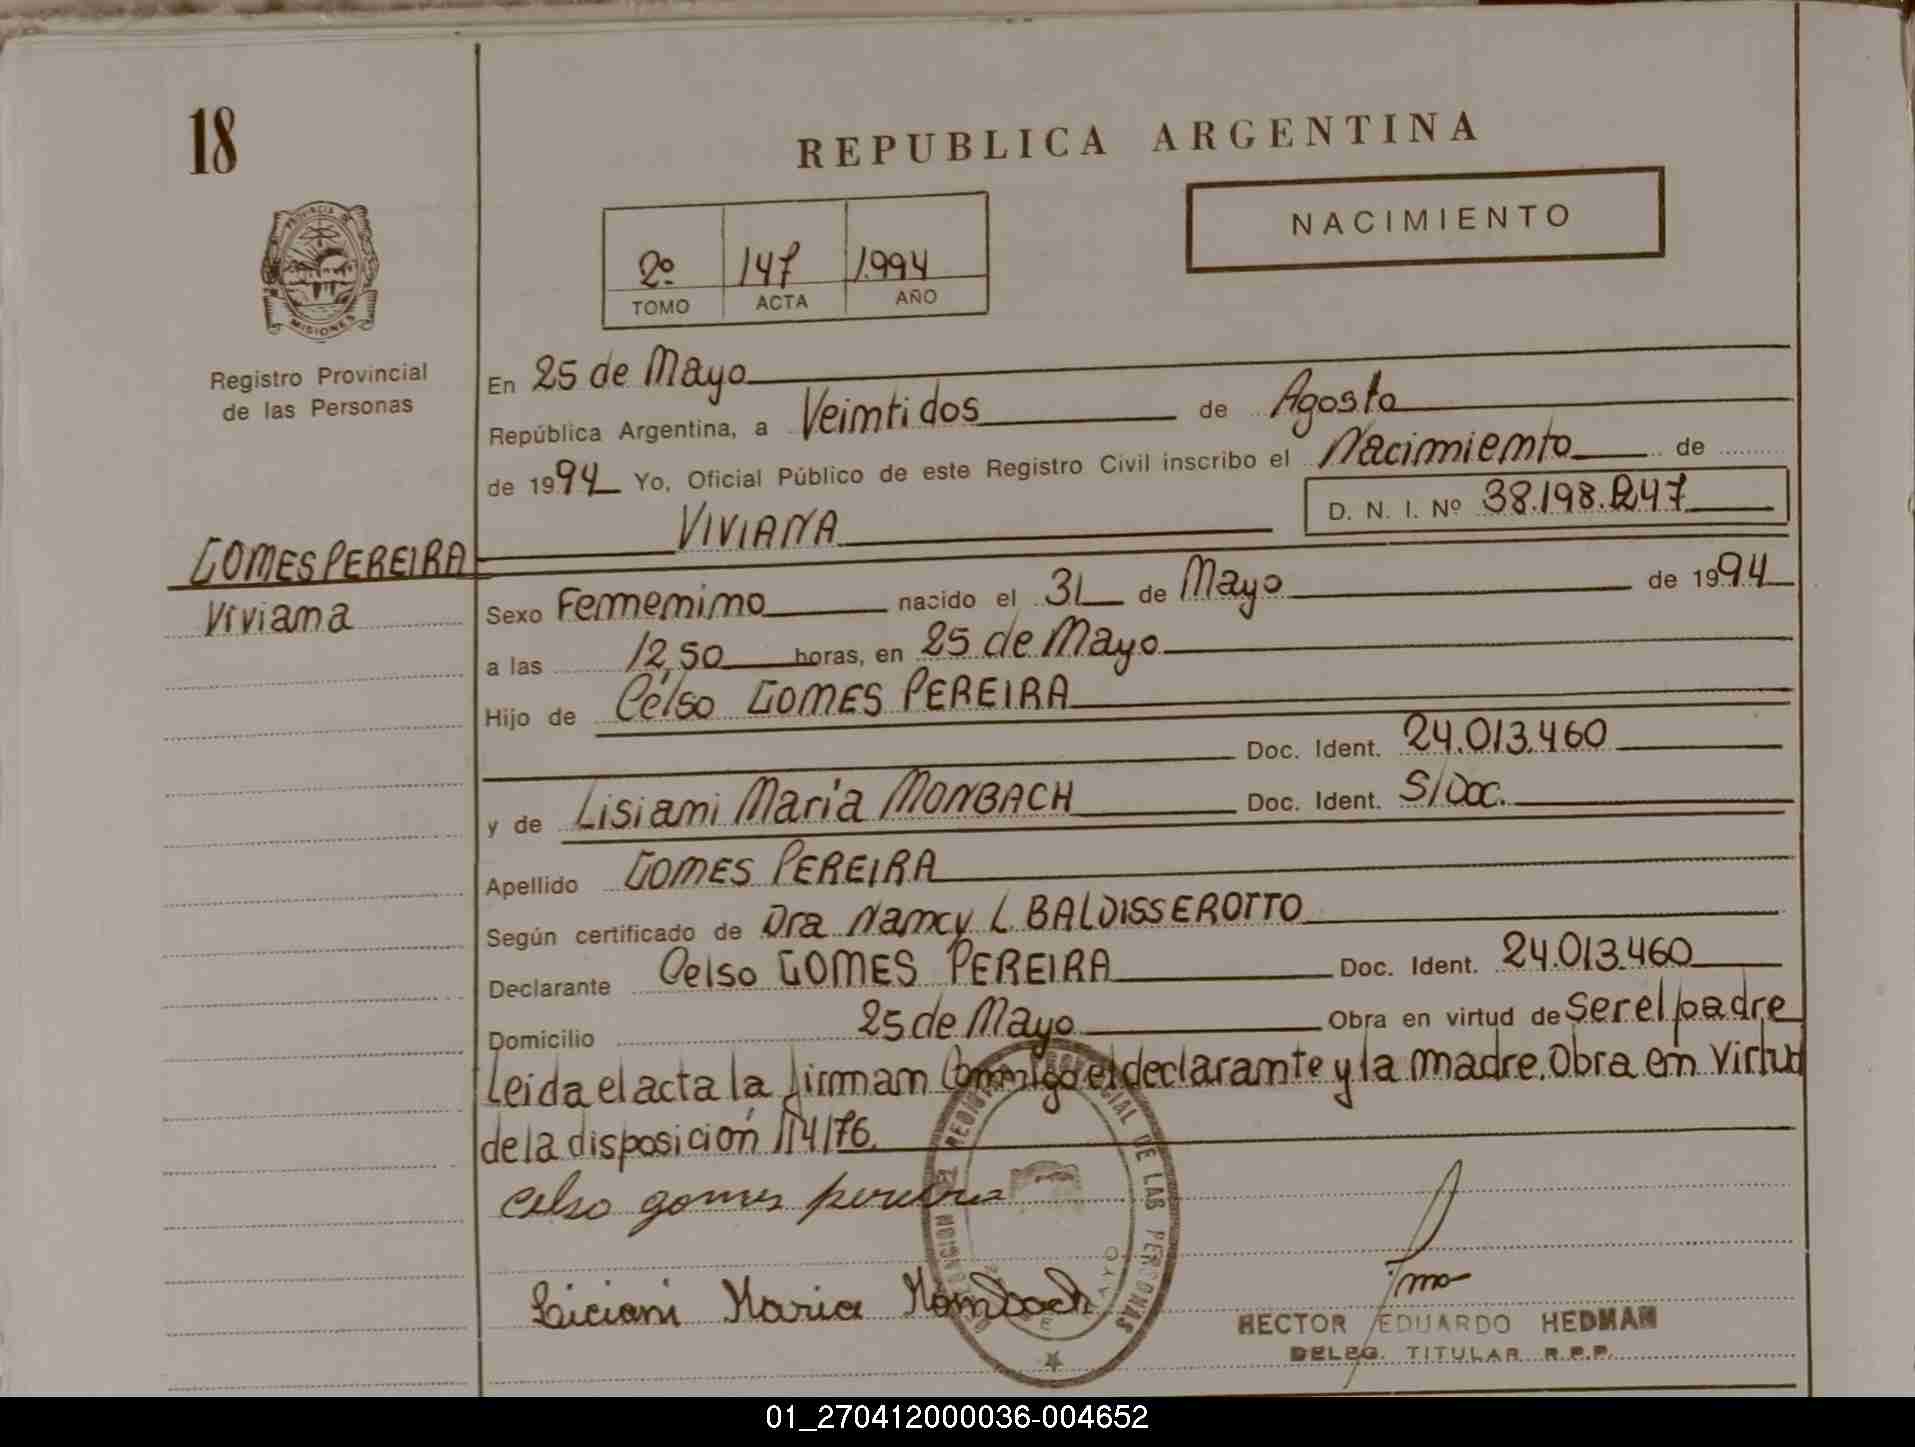 18
REPUBLICA ARGENTINA
NACIMIENTO
2º 147 1.994
TOMO ACTA AÑO
PROVINCIA DE
MISIONES
Registro Provincial
de las Personas
En 25 de Mayo
República Argentina, a Veimtidos de Agosto
de 1994 Yo, Oficial Público de este Registro Civil inscribo el Nacimiento de
D. N. I. Nº 38.198.247
VIVIANA
GOMES PEREIRA
Viviana
Sexo Femenimo nacido el 31 de Mayo de 1994
a las 12,50 horas, en 25 de Mayo
Hijo de Celso GOMES PEREIRA
Doc. Ident. 24.013.460
y de Lisiami Maria MONBACH Doc. Ident. S/Doc.
Apellido GOMES PEREIRA
Según certificado de Dra Nancy L. BALDISSEROTTO
Declarante Celso GOMES PEREIRA Doc. Ident. 24.013.460
Domicilio 25 de Mayo Obra en virtud de ser el padre
Leida el acta la firman Conmigo el declarante y la madre. Obra en Virtud
de la disposición 114/76.
Celso gomes pereira
Liciani Maria Mombach
DE LAS PERSONAS
HECTOR EDUARDO HEDMAN
DELEG. TITULAR R.P.P.
01_270412000036-004652